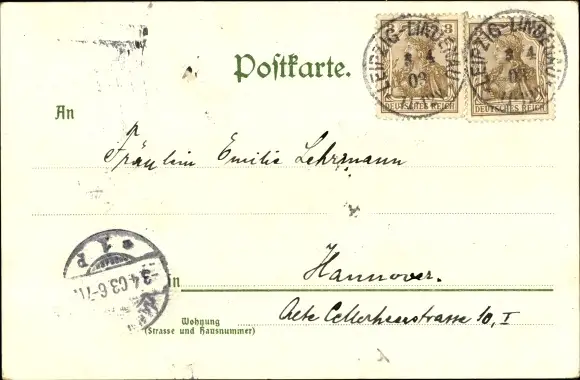 3 3
LEIPZIG-LINDENAU
LEIPZIG-LINDENAU
3 4
03
DEUTSCHES REICH
DEUTSCHES REICH
Postkarte.
An
Fräulein Emilie Lehrmann
* 1 P
3.4.03.6-7N.
in Hannover.
Wohnung
(Strasse und Hausnummer)
Alte Cellerheerstrasse 10, I